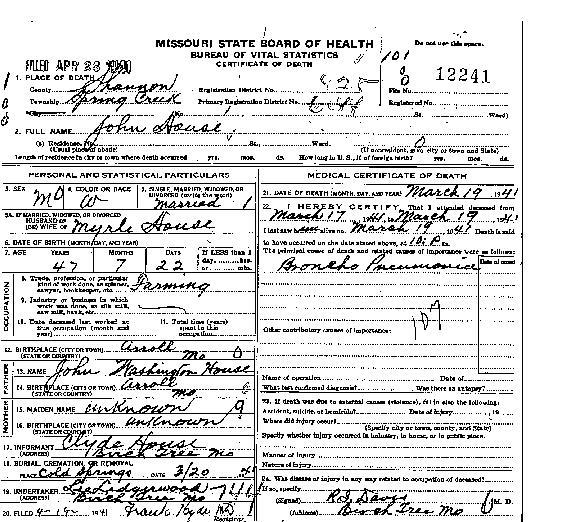 MISSOURI STATE BOARD OF HEALTH
Do not use this space.
BUREAU OF VITAL STATISTICS
CERTIFICATE OF DEATH
FILED APR 23
1. PLACE OF DEATH
County Shannon
Registration District No.
File No. 12241
Township Spring Creek
Primary Registration District No.
Registered No.
City
St.
Ward)
2. FULL NAME John House
(a) Residence, No.
St.
Ward.
(Usual place of abode)
(If nonresident, give city or town and State)
Length of residence in city or town where death occurred yrs. mos. ds. How long in U.S., if of foreign birth? yrs. mos. ds.
PERSONAL AND STATISTICAL PARTICULARS
3. SEX
4. COLOR OR RACE W
5. SINGLE, MARRIED, WIDOWED, OR
DIVORCED (write the word)
Married
5A. IF MARRIED, WIDOWED, OR DIVORCED
HUSBAND OF
(OR) WIFE OF Myrle House
6. DATE OF BIRTH (MONTH, DAY, AND YEAR)
7. AGE YEARS MONTHS DAYS If LESS than 1
day, hrs.
or min.
47 7 22
OCCUPATION
8. Trade, profession, or particular
kind of work done, as spinner,
sawyer, bookkeeper, etc. Farming
9. Industry or business in which
work was done, as silk mill,
saw mill, bank, etc.
10. Date deceased last worked at
this occupation (month and
year)
11. Total time (years)
spent in this
occupation
12. BIRTHPLACE (CITY OR TOWN)
(STATE OR COUNTRY) Mo
FATHER
13. NAME John Washington House
14. BIRTHPLACE (CITY OR TOWN)
(STATE OR COUNTRY) Mo
MOTHER
15. MAIDEN NAME unknown 9
16. BIRTHPLACE (CITY OR TOWN) unknown
(STATE OR COUNTRY)
17. INFORMANT Clyde House
(ADDRESS) Birch Tree Mo
18. BURIAL, CREMATION, OR REMOVAL
PLACE Cold Springs DATE 3/20 41
19. UNDERTAKER
(ADDRESS) Birch Tree Mo
20. FILED 4-12- 1941 Frank Hyde MD
Registrar
MEDICAL CERTIFICATE OF DEATH
21. DATE OF DEATH (MONTH, DAY, AND YEAR) March 19 1941
22. I HEREBY CERTIFY, That I attended deceased from
March 17 1941, to March 19 1941
I last saw him alive on March 19 1941 Death is said
to have occurred on the date stated above, at 10: P. m.
The principal cause of death and related causes of importance were as follows:
Date of onset
Broncho Pneumonia
107
Other contributory causes of importance:
Name of operation Date of
What test confirmed diagnosis? Was there an autopsy?
23. If death was due to external causes (violence), fill in also the following:
Accident, suicide, or homicide? Date of injury , 19
Where did injury occur?
(Specify city or town, county, and State)
Specify whether injury occurred in industry, in home, or in public place.
Manner of injury
Nature of injury
24. Was disease or injury in any way related to occupation of deceased?
If so, specify
(Signed) R.S. Davis M. D.
(Address) Birch Tree Mo